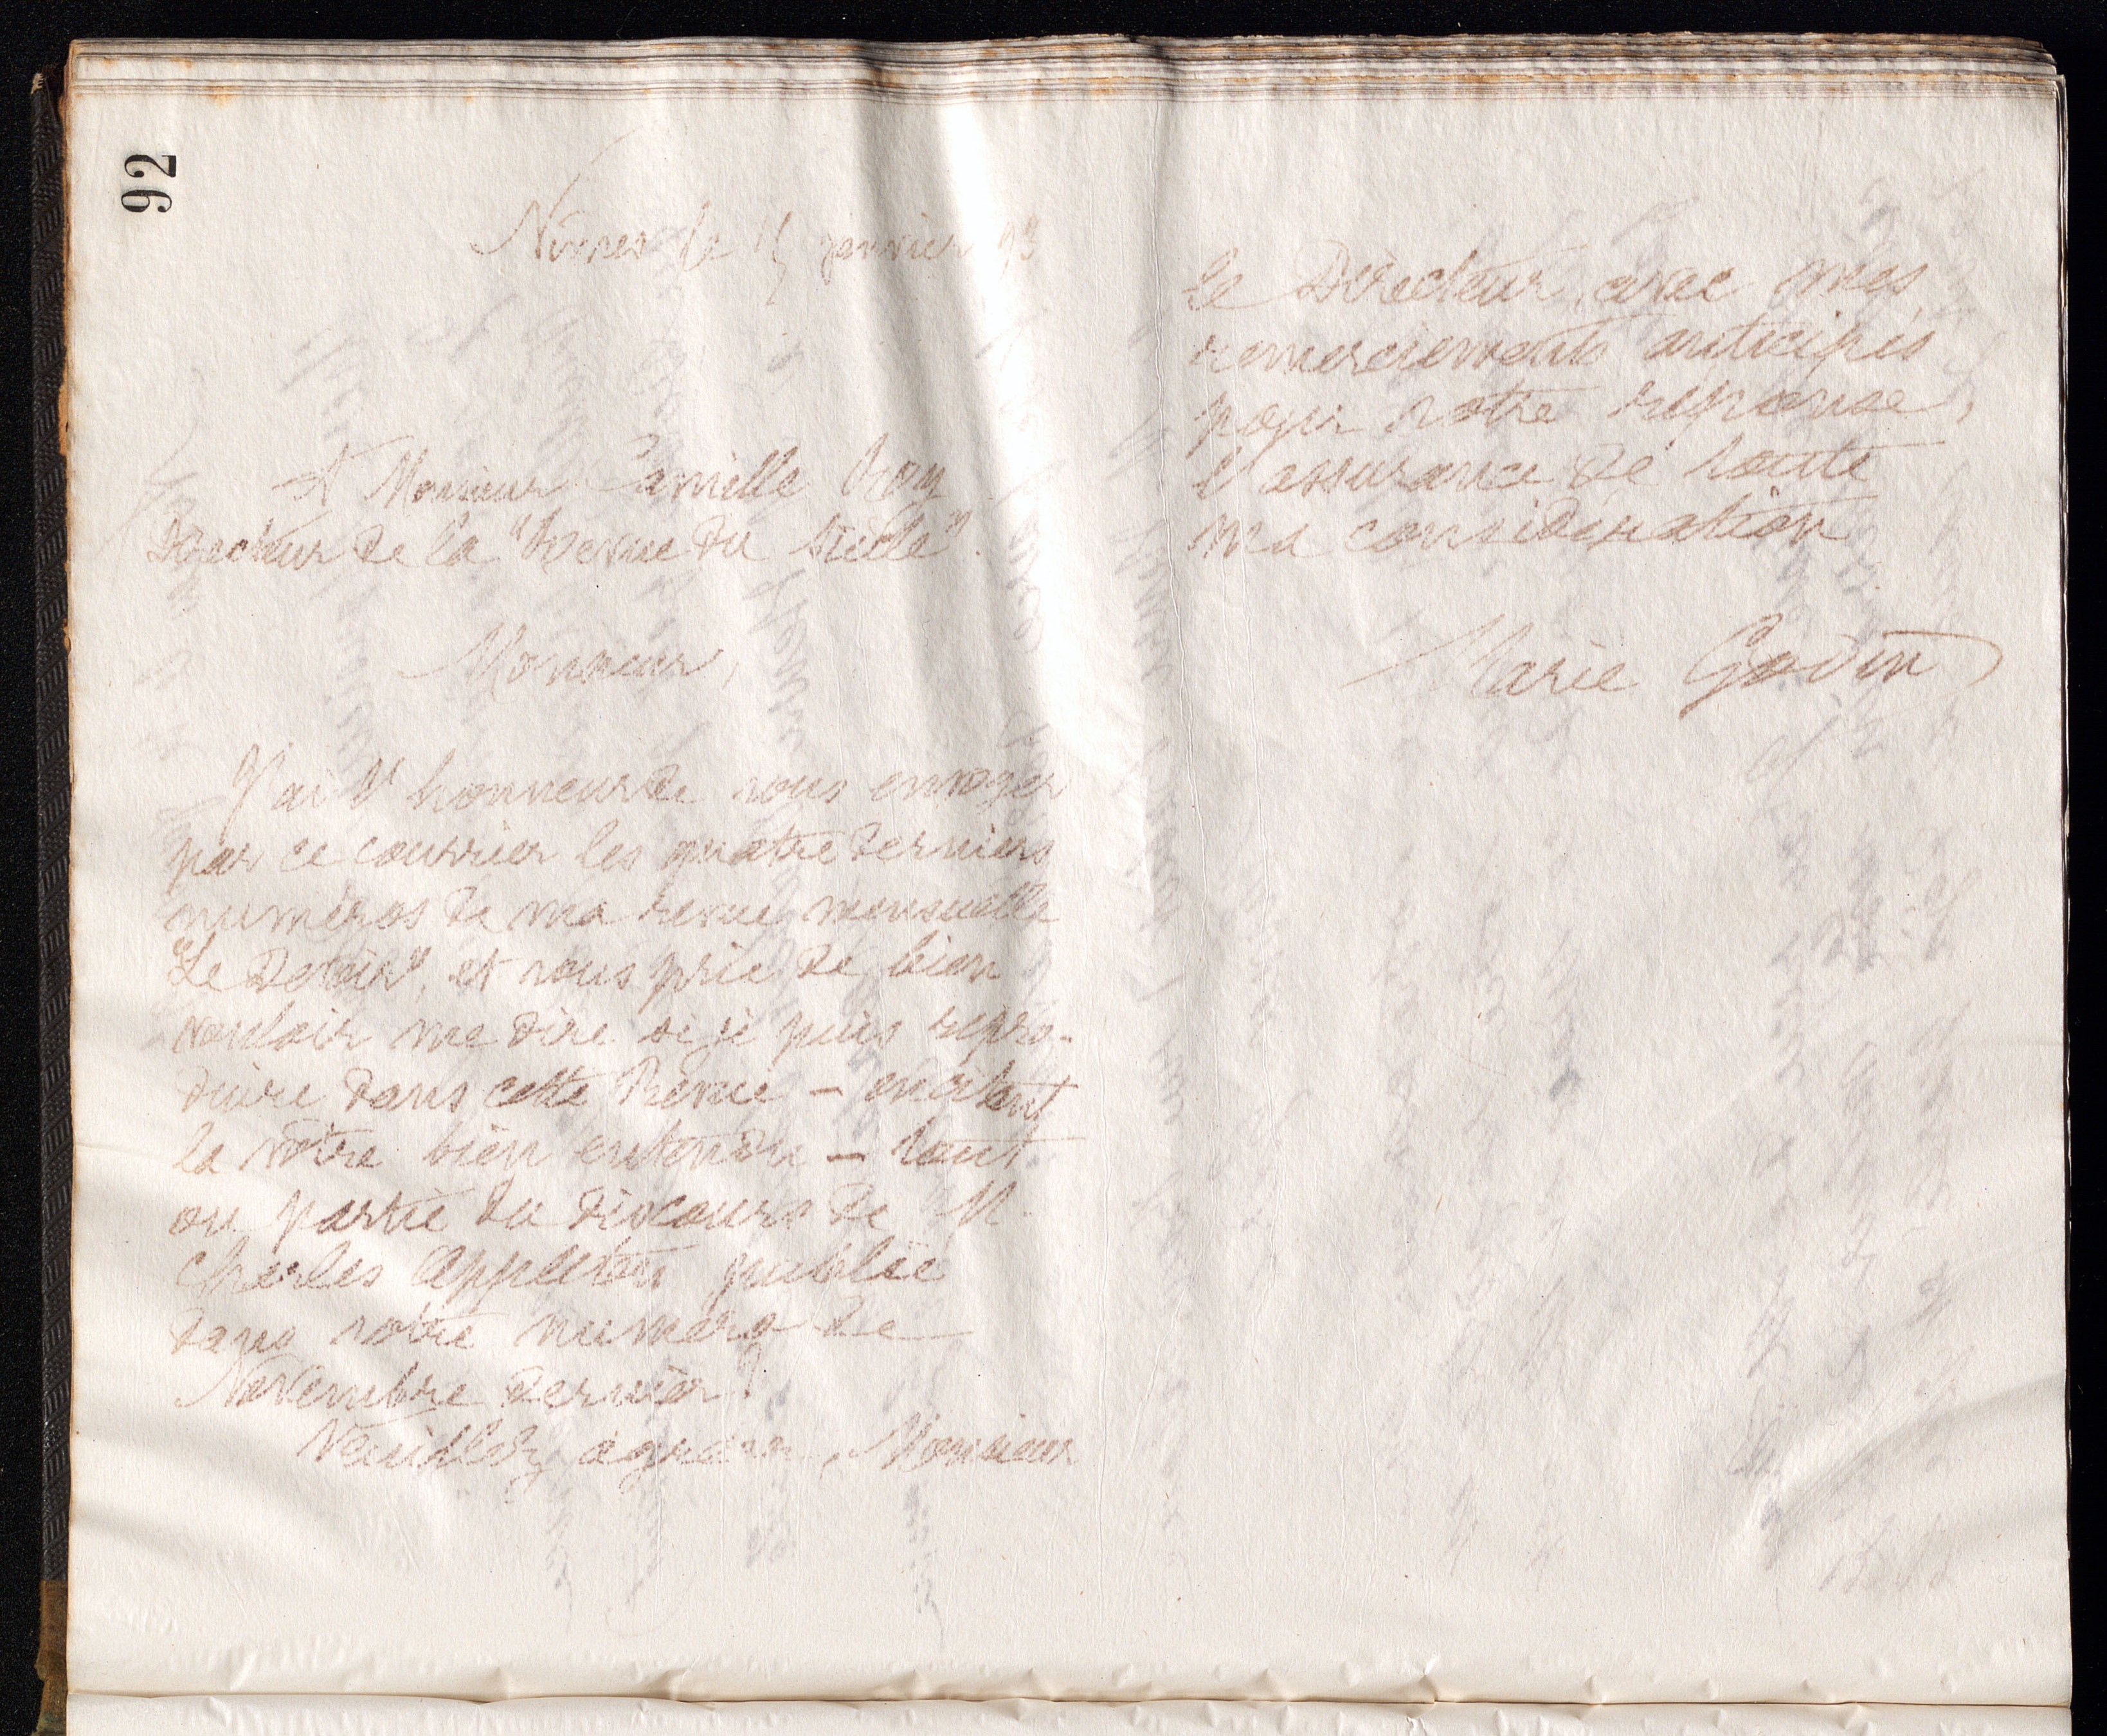 92
Nîmes le 15 janvier 93
A Monsieur Camille Roy
Directeur de la "Revue du Siècle".
Monsieur,
J'ai l'honneur de vous envoyer
par ce courrier les quatre derniers
numéros de ma revue mensuelle
"Le Devoir", et vous prie de bien
vouloir me dire si je puis repro-
duire dans cette Revue – en citant
la vôtre bien entendu – tout
ou partie du discours de M.
Charles Appleton publié
dans votre numéro de
Novembre dernier?
Veuillez agréer, Monsieur
le Directeur, avec mes
remerciements anticipés
pour votre réponse,
l'assurance de toute
ma considération
Marie Godin